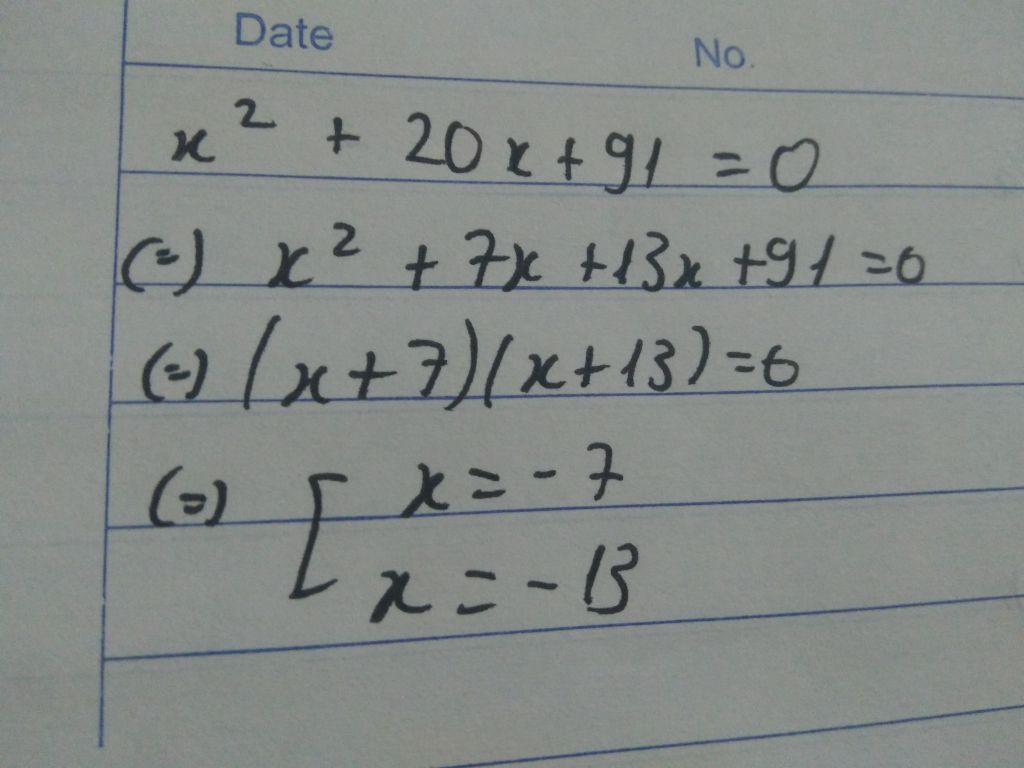 Date No.
x² + 20x + 91 = 0
(=) x² + 7x + 13x + 91 = 0
(=) (x + 7)(x + 13) = 0
(=) [ x = - 7
x = - 13